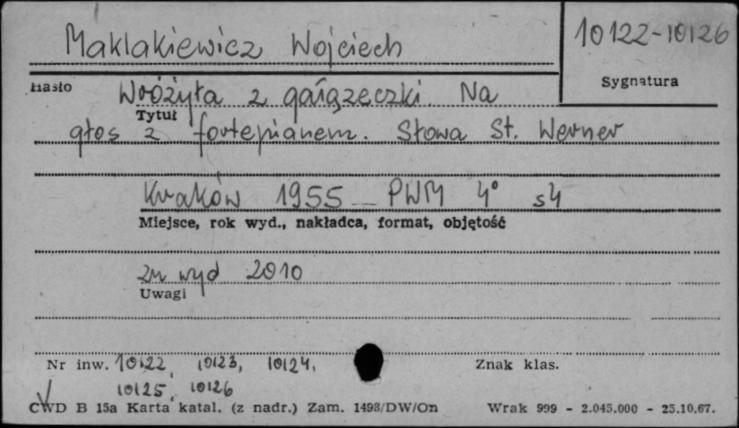 Maklakiewicz Wojciech
10122-10126
Hasło
Sygnatura
Wróżyła z gałązeczki. Na
Tytuł
głos z fortepianem. Słowa St. Werner
Kraków 1955 PWM 4° s4
Miejsce, rok wyd., nakładca, format, objętość
zn wyd 2010
Uwagi
Nr inw. 10122, 10123, 10124, Znak klas.
10125, 10126
CWD B 15a Karta katal. (z nadr.) Zam. 1498/DW/On Wrak 999 - 2.045.000 - 25.10.67.